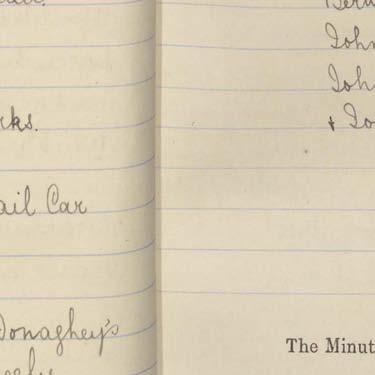 rks.
ail Car
Donaghey's
Bern
John
Joh
+ Jo
The Minut